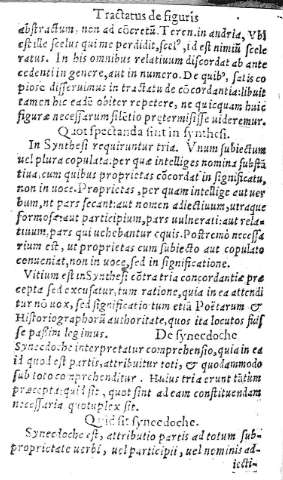 Tractatus de figuris
abstractum, non ad cōcretū. Teren. in andria, Vbi
est ille scelus qui me perdidit, scel⁹, id est nimiū scele
ratus. In his omnibus relatiuum discordat ab ante
cedenti in genere, aut in numero. De quib⁹, satis co
piose disseruimus in tractatu de cōcordantia: libuit
tamen hic eadē obiter repetere, ne quicquam huic
figuræ necessarum silētio pretermisisse uideremur.
Quot spectanda sint in synthesi.
In Synthesi requiruntur tria. Vnum subiectum
uel plura copulata: per quæ intelliges nomina substā
tiua, cum quibus proprietas cōcordat in significatu,
non in uoce. Proprietas, per quam intellige aut uer
bum, ut pars secant: aut nomen adiectiuum, utraque
formosæ: aut participium, pars uulnerati: aut rela
tiuum, pars qui uchebantur equis. Postremō necessa
rium est, ut proprietas cum subiecto aut copulato
conueniat, non in uoce, sed in significatione.
Vitium est in Synthesi cōtra tria concordantiæ præ
cepta sed excusatur, tum ratione, quia in ea attendi
tur nō uox, sed significatio tum etiā Poëtarum &
Historiographorū authoritate, quos ita locutos fuis
se passim legimus. De synecdoche
Synecdoche interpretatur comprehensio, quia in ea
id quod est partis, attribuitur toti, & quodammodo
sub toto comprehenditur. Huius tria erunt tātum
præcepta: quid sit, quot sint ad eam constituendam
necessaria quotuplex sit.
Quid sit synecdoche.
Synecdoche est, attributio partis ad totum sub-
proprietate uerbi, uel participii, uel nominis ad-
iecti-